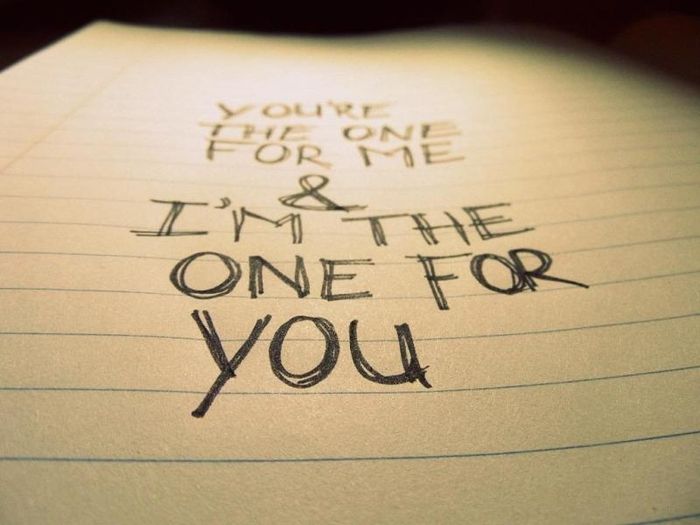 YOU'RE
THE ONE
FOR ME
&
I'M THE
ONE FOR
YOU